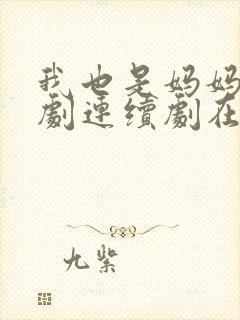 我也是妈妈
劇連續劇在
九紫